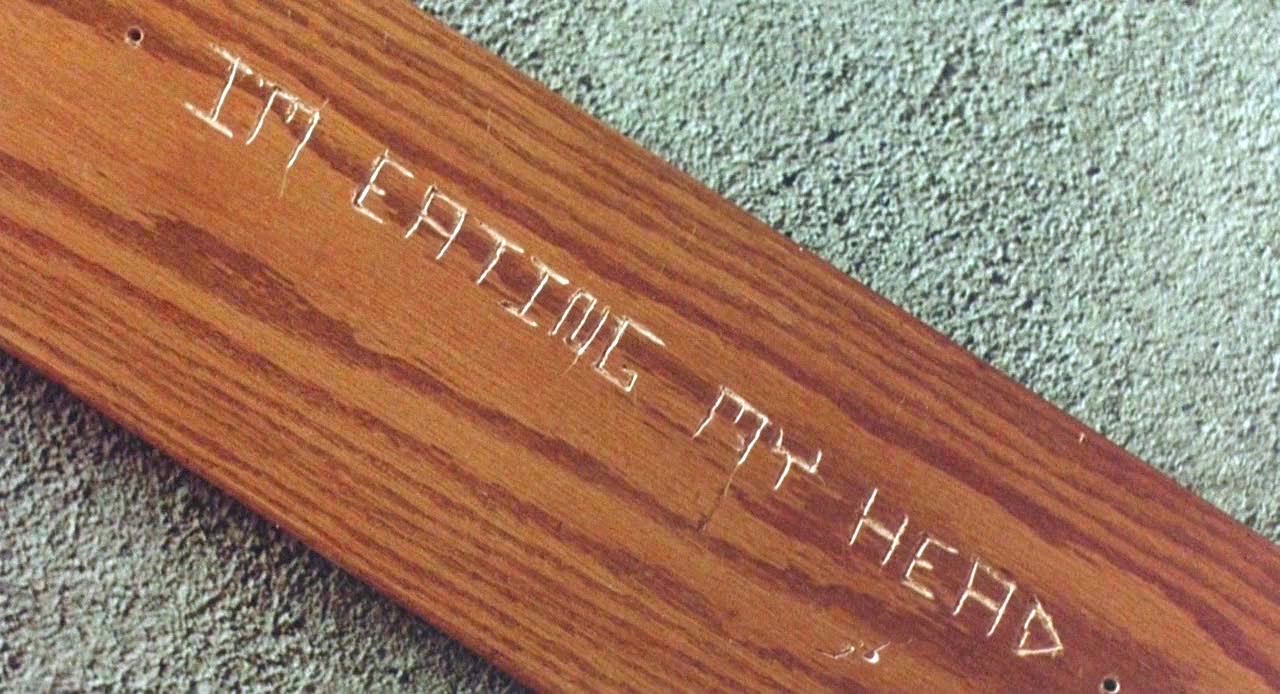 I'M EATING MY HEAD